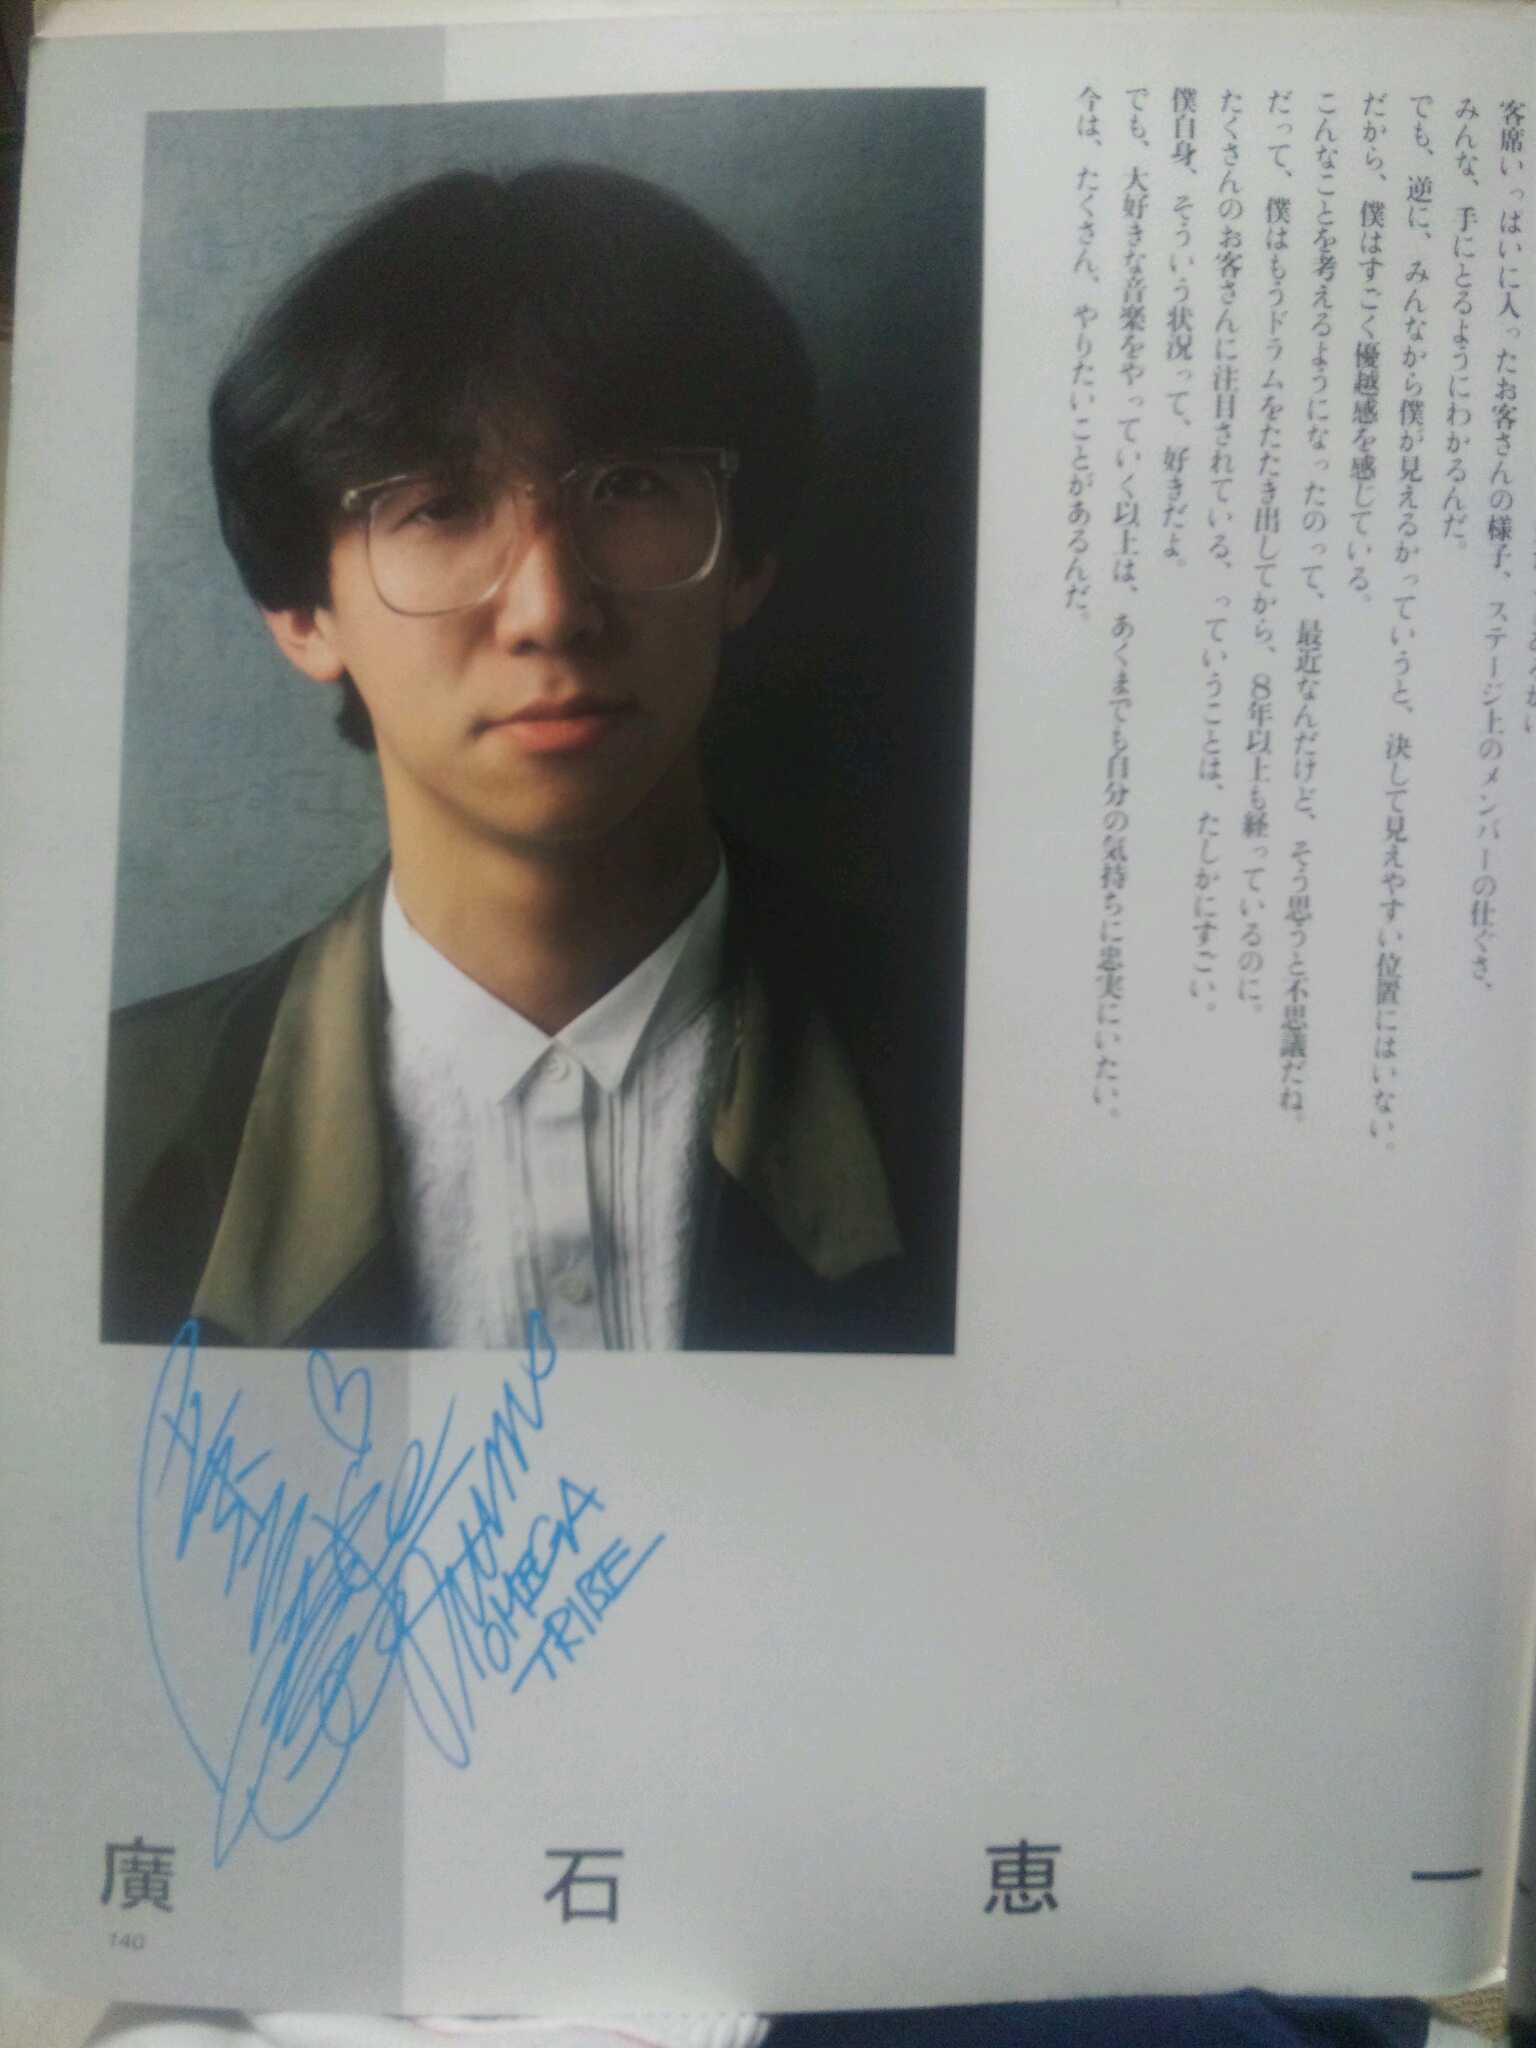 客席いっぱいに入ったお客さんの様子、ステージ上のメンバーの仕ぐさ、
みんな、手にとるようにわかるんだ。
でも、逆に、みんなから僕が見えるかっていうと、決して見えやすい位置にはいない。
だから、僕はすごく優越感を感じている。
こんなことを考えるようになったのって、最近なんだけど、そう思うと不思議だね。
だって、僕はもうドラムをたたき出してから、8年以上も経っているのに。
たくさんのお客さんに注目されている、っていうことは、たしかにすごい。
僕自身、そういう状況って、好きだよ。
でも、大好きな音楽をやっていく以上は、あくまでも自分の気持ちに忠実にいたい。
今は、たくさん、やりたいことがあるんだ。
OMEGA
TRIBE
廣石恵一
140